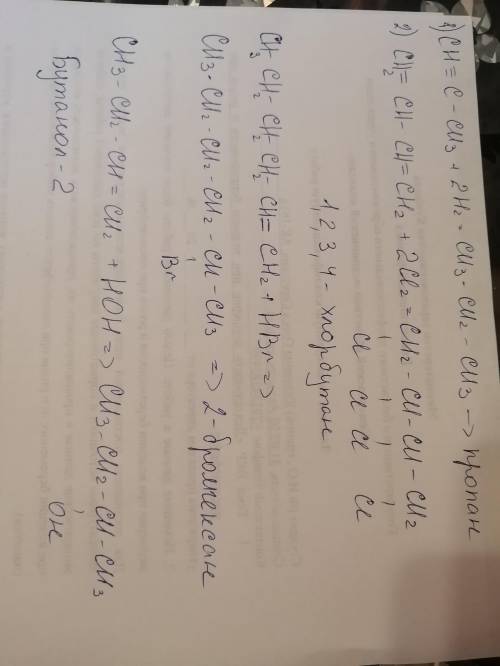 1) CH≡C - CH3 + 2H2 = CH3 - CH2 - CH3 -> пропан
2) CH2= CH - CH=CH2 + 2Cl2 = CH2 - CH - CH - CH2
Cl Cl Cl Cl
1,2,3,4 - хлорбутан
CH3 CH2 - CH2 CH2 - CH= CH2 + HBr =>
CH3 - CH2 - CH2 - CH2 - CH - CH3 => 2-бромгексан
Br
CH3 - CH2 - CH = CH2 + HOH => CH3 - CH2 - CH - CH3
Бутанол - 2 OH